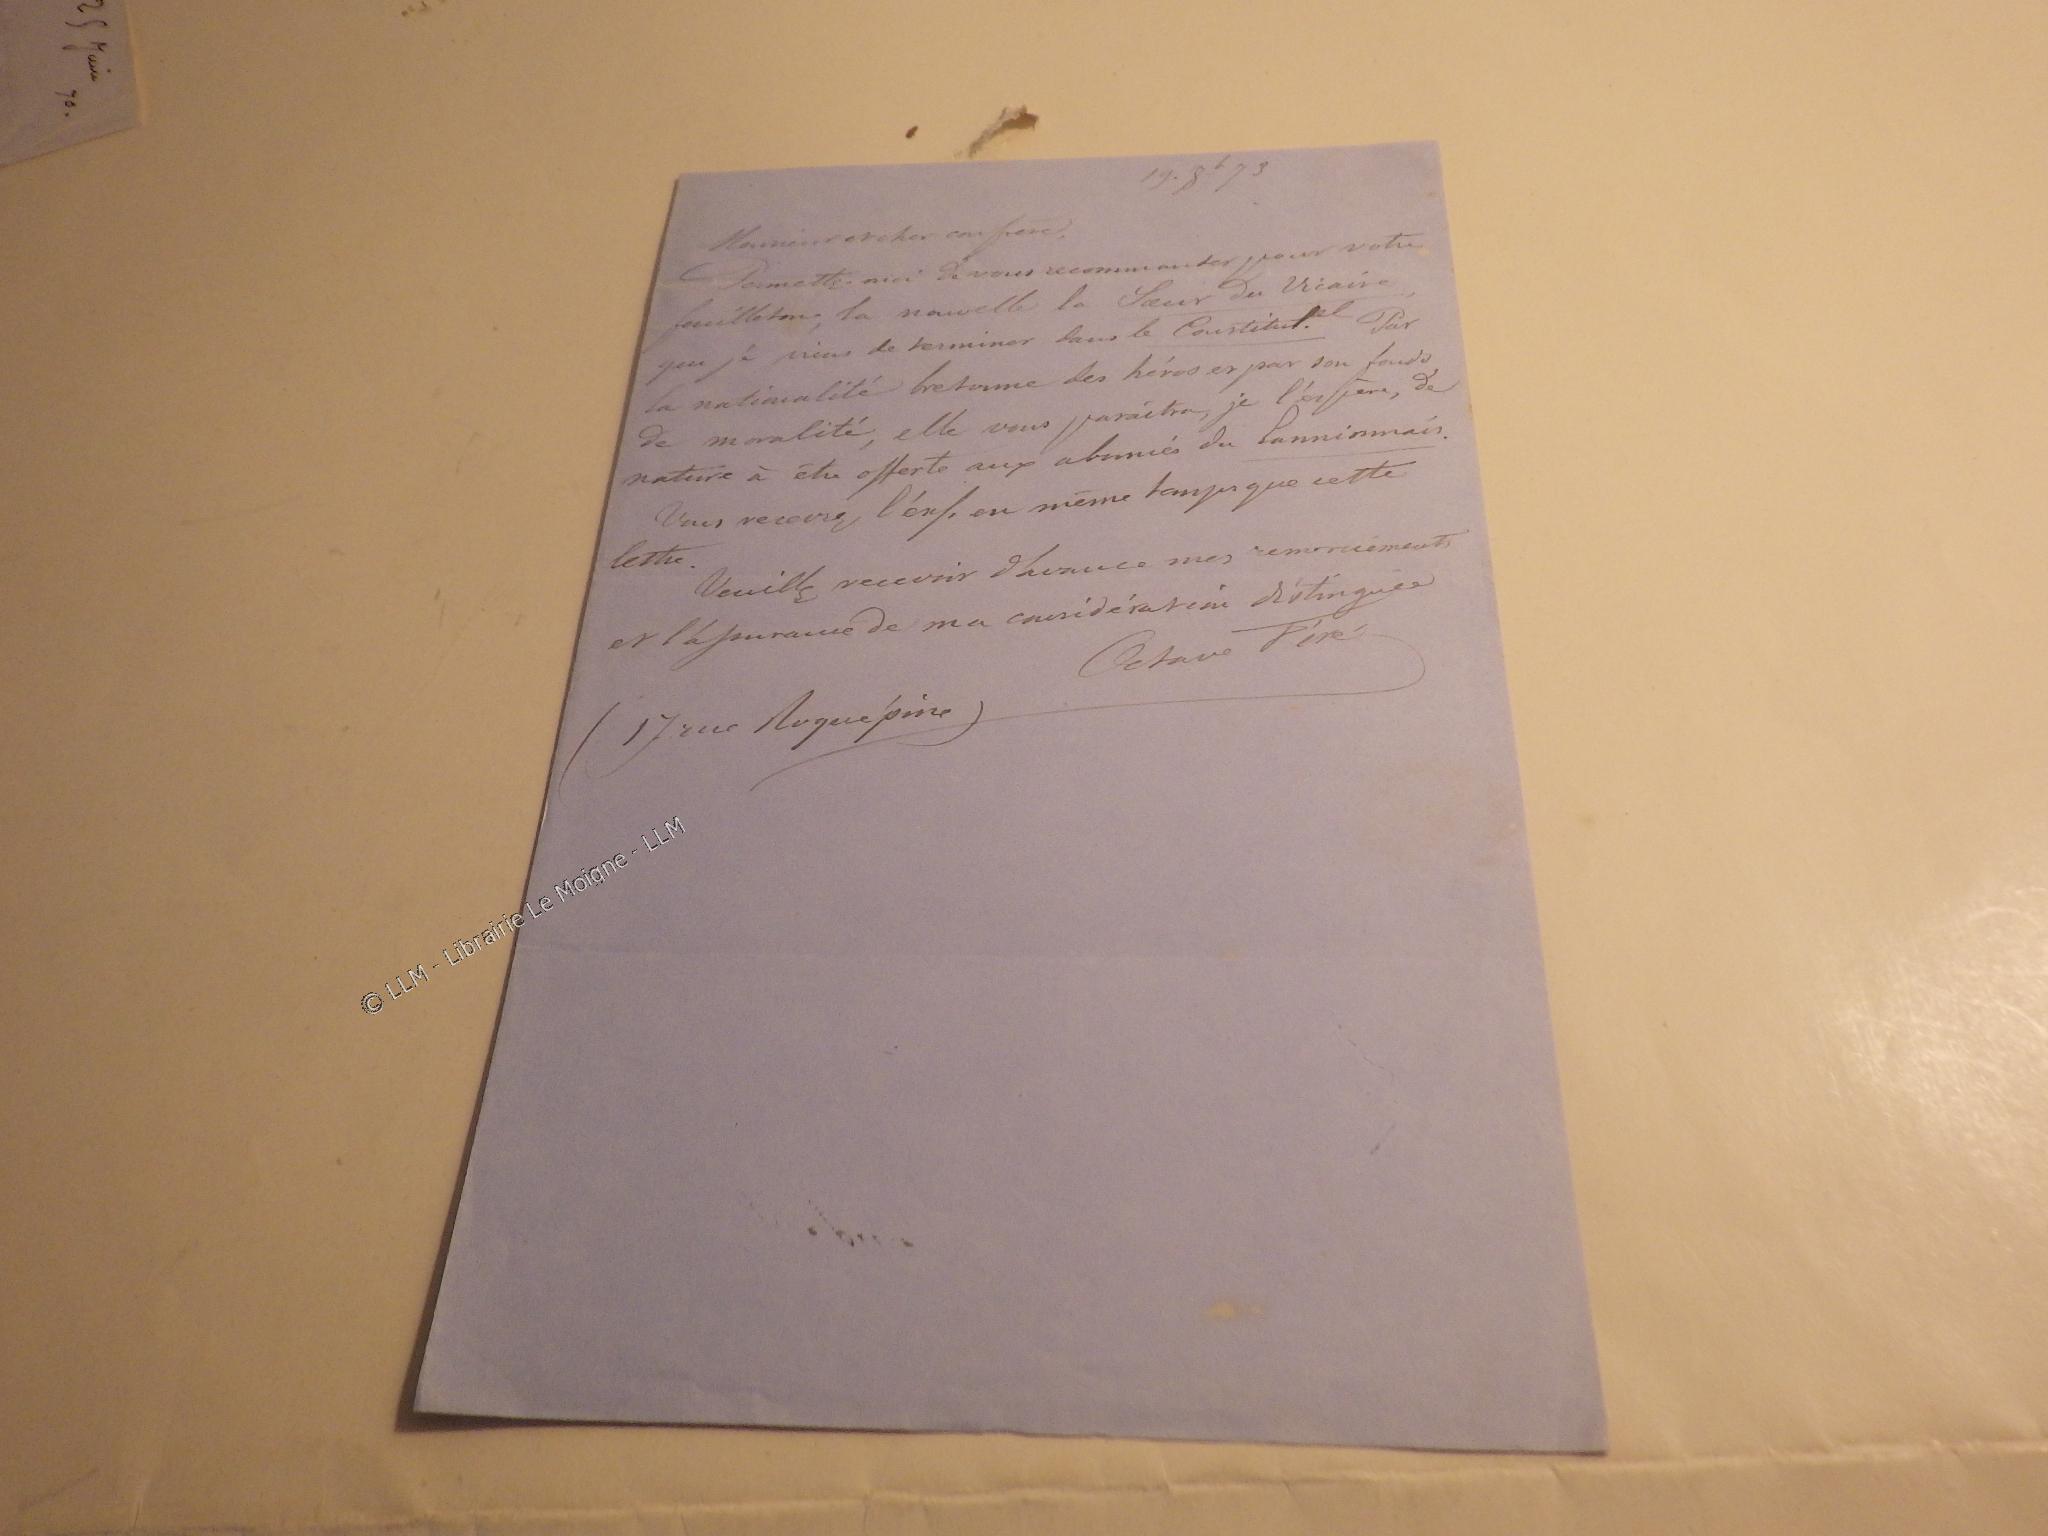 25 Mai
70.
19. 8b 73
Monsieur et cher confrère,
Permettez-moi de vous recommander pour votre
feuilleton, la nouvelle la Sœur du Vicaire,
que je viens de terminer dans le Constitut.el Par
la nationalité bretonne des héros et par son fonds
de moralité, elle vous paraîtra, je l'espère, de
nature à être offerte aux abonnés du Lannionnais.
Vous recevrez l'ex. en même temps que cette
lettre.
Veuillez recevoir d'avance mes remerciements
et l'assurance de ma considération distinguée
Octave Féré
(17 rue Roquépine)
© LLM - Librairie Le Moigne - LLM